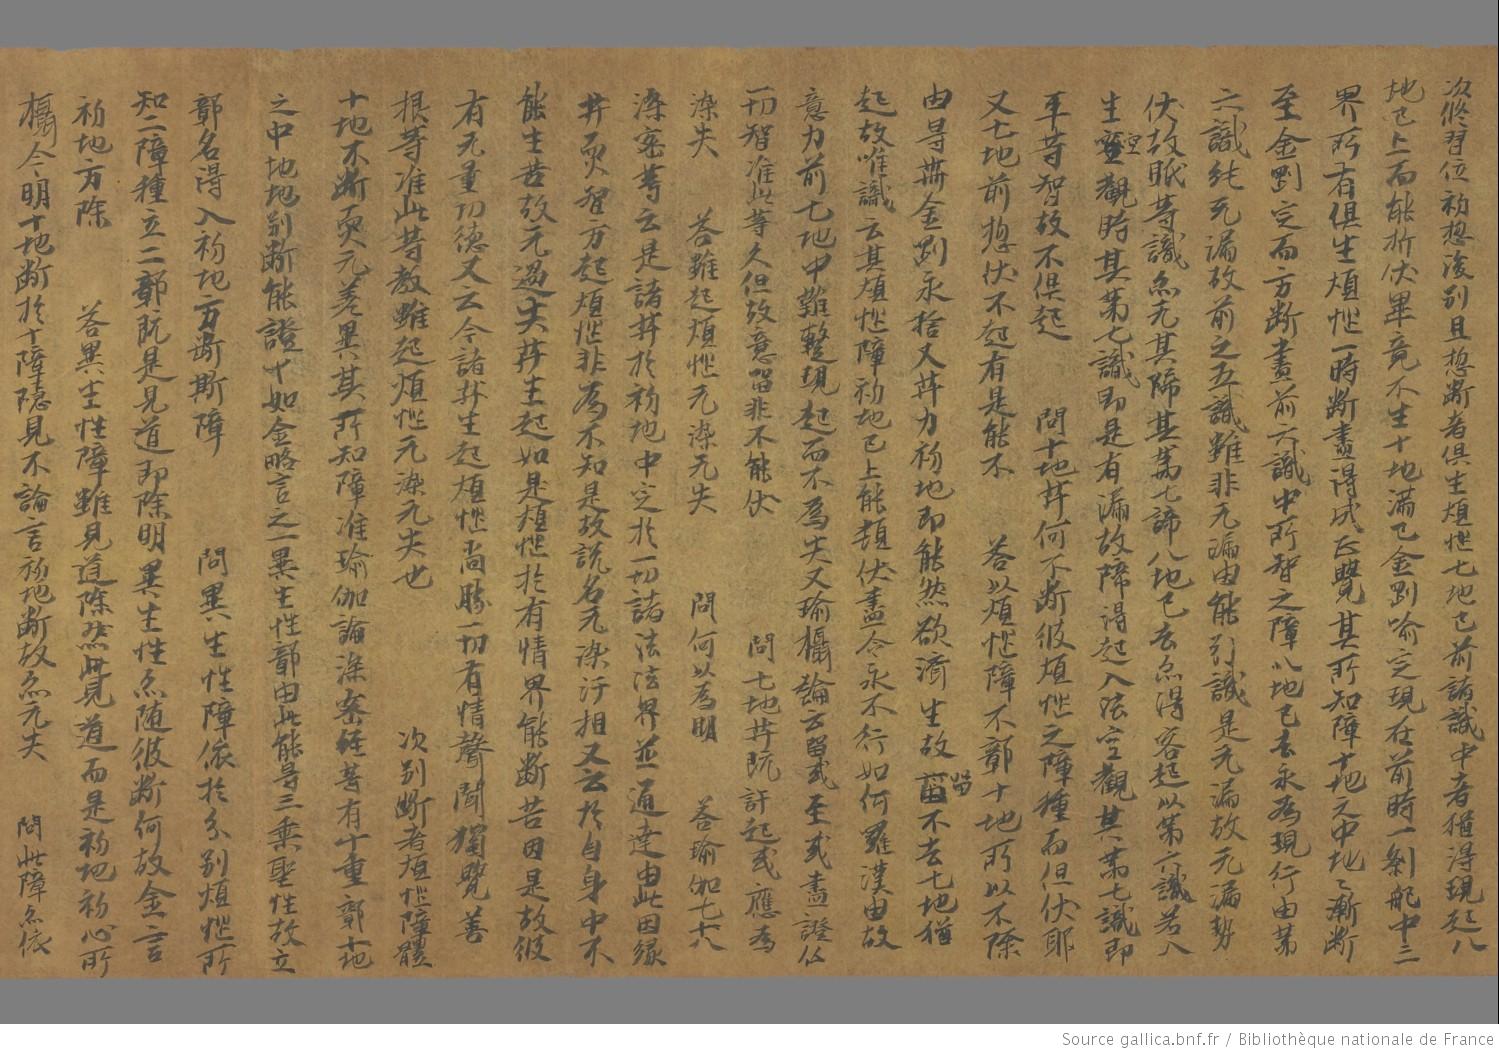 次修習位初惣後別且惣断者俱生煩惱七地已前諸識中者猶得現起八
地已上而能折伏畢竟不生十地滿已金剛喻定現在前時一剎那中三
界所有俱生煩惱一時断盡得成正覺其所知障十地之中地〻漸断
至金剛定而方断盡前六識中所智之障八地已去永為現行由第
六識純无漏故前之五識雖非无漏由能引識是无漏故无漏勢
伏故眂等識亦无其障其第七諦八地已去亦得容起以第六識若入
生空觀時其第七識即是有漏故障得起入法空觀其第七識即
平等智故不俱起 問十地井何不断彼煩惱之障種而但伏耶
又七地前惣伏不起有是能不 答以煩惱障不鄣十地所以不除
由㝵苐金剛永捨又井力初地即能然欲濟生故留不去七地猶
起故唯識云其煩惱障初地已上能頓伏盡令永不行如何羅漢由故
意力前七地中雖蹔現起而不為失又瑜攝論云留惑至惑盡證仏
一切智准此等久但故意留非不能伏 問七地井既許起惑應為
染失 答雖起煩惱无染无失 問何以為明 答瑜伽七十八
深密等云是諸井於初地中定於一切諸法法界並通達由此因緣
井要智方起煩惱非為不知是故說名无染汙相又云於自身中不
能生苦故无過失井生起如是煩惱於有情界能断苦因是故彼
有无量功德又云今諸井生起煩惱尚勝一切有情聲聞獨覺善
根等准此等教雖起煩惱无染无失也 次別断者煩惱障體
十地不断更无差異其所知障准瑜伽論深密經等有十重鄣十地
之中地地別断能證十如金略言之一異生性鄣由此能㝵三乘聖性故立
鄣名得入初地方断斯障 問異生性障依於分別煩惱所
知二障種立二鄣既是見道即除明異生性亦随彼断何故金言
初地方除 答異生性障雖見道除然此見道而是初地初心所
攝今明十地断於十障隱見不論言初地断故亦无失 問此障亦依
Source gallica.bnf.fr / Bibliothèque nationale de France